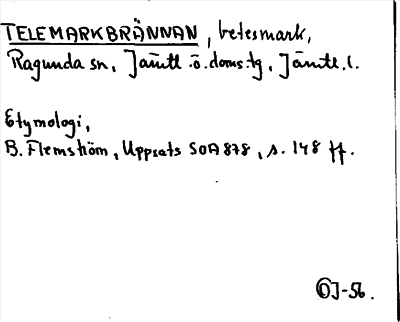 TELEMARKBRÄNNAN, betesmark,
Ragunda sn, Jämtl. ö. doms.tg, Jämtl. l.
Etymologi,
B. Flemström, Uppsats SOA 878, s. 148 ff.
OJ-56.